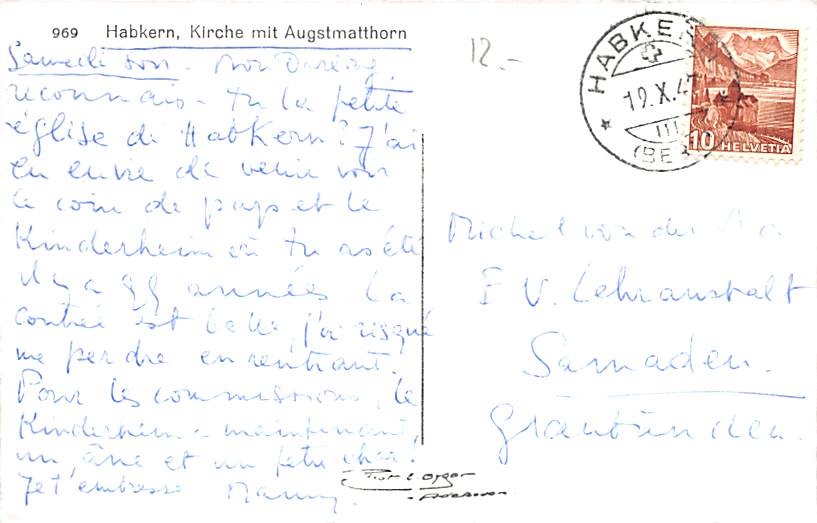 969 Habkern, Kirche mit Augstmatthorn
Samedi soir - Mon Darling,
reconnais-tu la petite
église de Habkern? J'ai
eu envie de venir voir
le coin de pays et le
Kinderheim où tu as été
il y a années. La
contrée est belle, j'ai risqué
me perdre en rentrant.
Pour les commissions, le
Kinderheim a maintenant,
un âne et un petit char.
Je t'embrasse Mammy.
12.-
HABKERN
19.X.4
III
(BE)
10 HELVETIA
Michel von der
E V. Lehranstalt
Samaden.
Graubünden.
Phot.